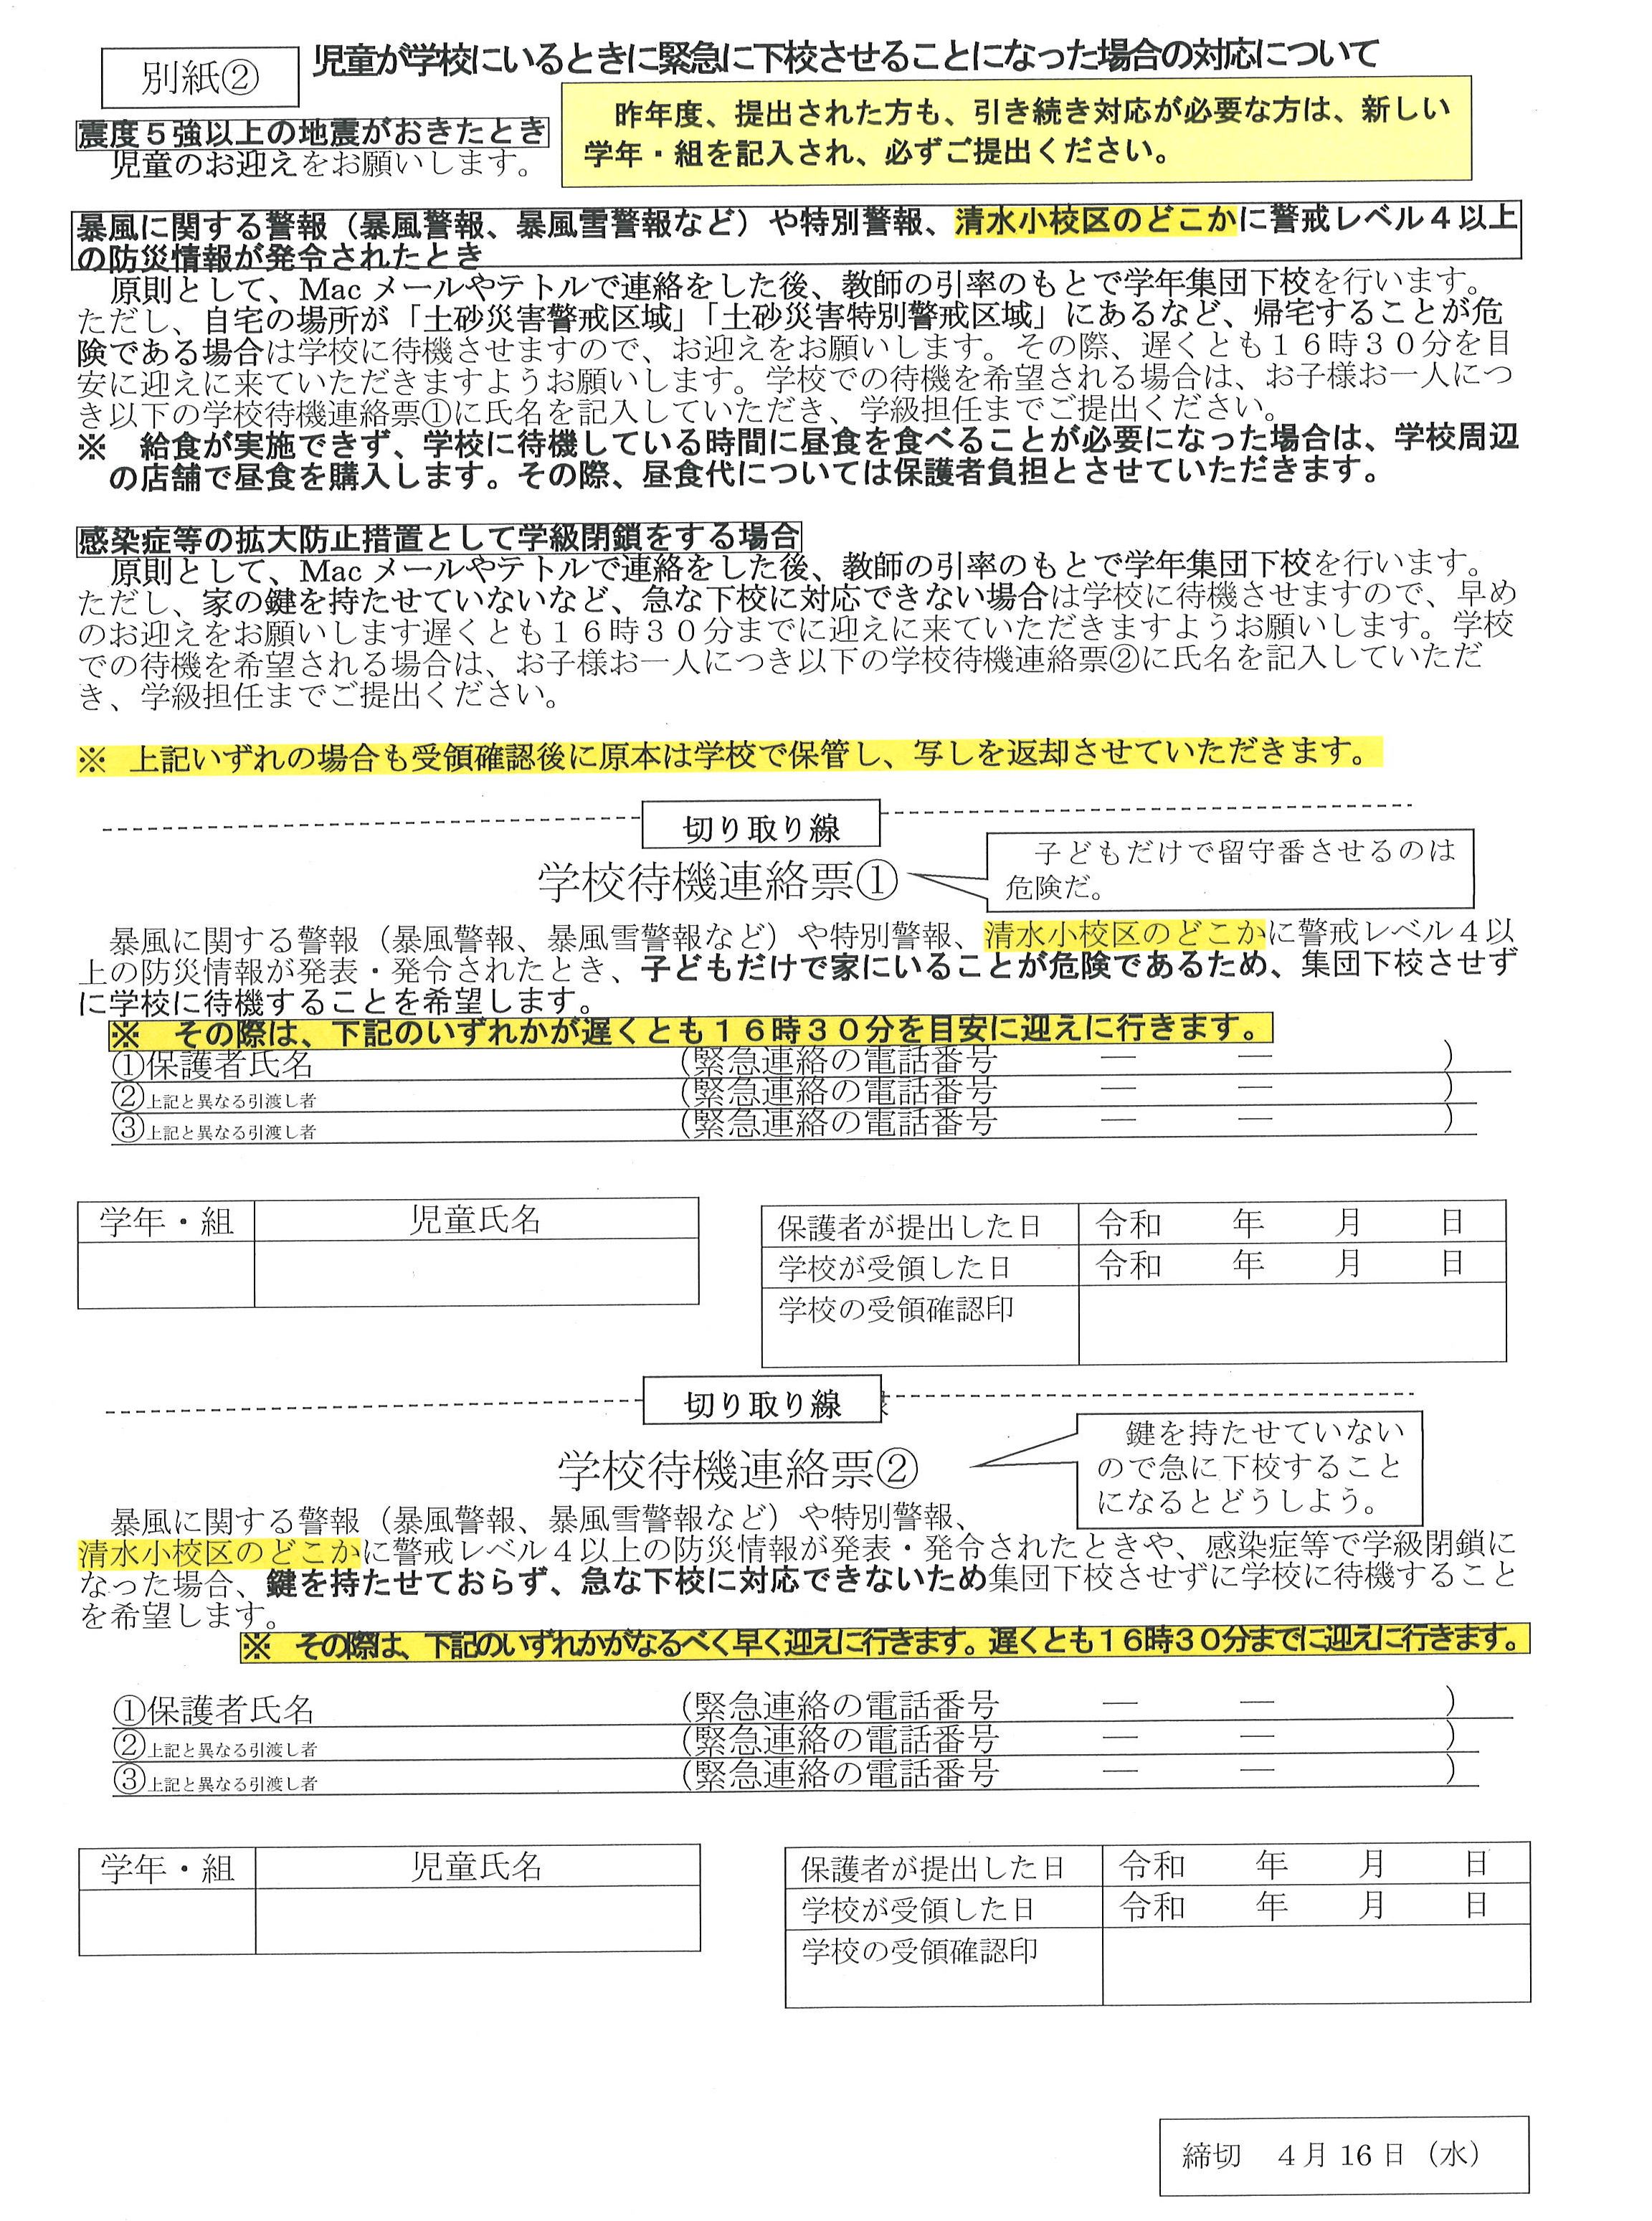 別紙②
児童が学校にいるときに緊急に下校させることになった場合の対応について
昨年度、提出された方も、引き続き対応が必要な方は、新しい
学年・組を記入され、必ずご提出ください。
震度５強以上の地震がおきたとき
児童のお迎えをお願いします。
暴風に関する警報（暴風警報、暴風雪警報など）や特別警報、清水小校区のどこかに警戒レベル４以上
の防災情報が発令されたとき
原則として、Mac メールやテトルで連絡をした後、教師の引率のもとで学年集団下校を行います。
ただし、自宅の場所が「土砂災害警戒区域」「土砂災害特別警戒区域」にあるなど、帰宅することが危
険である場合は学校に待機させますので、お迎えをお願いします。その際、遅くとも１６時３０分を目
安に迎えに来ていただきますようお願いします。学校での待機を希望される場合は、お子様お一人につ
き以下の学校待機連絡票①に氏名を記入していただき、学級担任までご提出ください。
※　給食が実施できず、学校に待機している時間に昼食を食べることが必要になった場合は、学校周辺
の店舗で昼食を購入します。その際、昼食代については保護者負担とさせていただきます。
感染症等の拡大防止措置として学級閉鎖をする場合
原則として、Mac メールやテトルで連絡をした後、教師の引率のもとで学年集団下校を行います。
ただし、家の鍵を持たせていないなど、急な下校に対応できない場合は学校に待機させますので、早め
のお迎えをお願いします遅くとも１６時３０分までに迎えに来ていただきますようお願いします。学校
での待機を希望される場合は、お子様お一人につき以下の学校待機連絡票②に氏名を記入していただ
き、学級担任までご提出ください。
※　上記いずれの場合も受領確認後に原本は学校で保管し、写しを返却させていただきます。
切り取り線
学校待機連絡票①
子どもだけで留守番させるのは
危険だ。
暴風に関する警報（暴風警報、暴風雪警報など）や特別警報、清水小校区のどこかに警戒レベル４以
上の防災情報が発表・発令されたとき、子どもだけで家にいることが危険であるため、集団下校させず
に学校に待機することを希望します。
※　その際は、下記のいずれかが遅くとも１６時３０分を目安に迎えに行きます。
①保護者氏名　（緊急連絡の電話番号　―　―　）
②上記と異なる引渡し者　（緊急連絡の電話番号　―　―　）
③上記と異なる引渡し者　（緊急連絡の電話番号　―　―　）
学年・組　児童氏名
保護者が提出した日　令和　年　月　日
学校が受領した日　令和　年　月　日
学校の受領確認印
切り取り線
学校待機連絡票②
鍵を持たせていない
ので急に下校すること
になるとどうしよう。
暴風に関する警報（暴風警報、暴風雪警報など）や特別警報、
清水小校区のどこかに警戒レベル４以上の防災情報が発表・発令されたときや、感染症等で学級閉鎖に
なった場合、鍵を持たせておらず、急な下校に対応できないため集団下校させずに学校に待機すること
を希望します。
※　その際は、下記のいずれかがなるべく早く迎えに行きます。遅くとも１６時３０分までに迎えに行きます。
①保護者氏名　（緊急連絡の電話番号　―　―　）
②上記と異なる引渡し者　（緊急連絡の電話番号　―　―　）
③上記と異なる引渡し者　（緊急連絡の電話番号　―　―　）
学年・組　児童氏名
保護者が提出した日　令和　年　月　日
学校が受領した日　令和　年　月　日
学校の受領確認印
締切　４月 16 日（水）